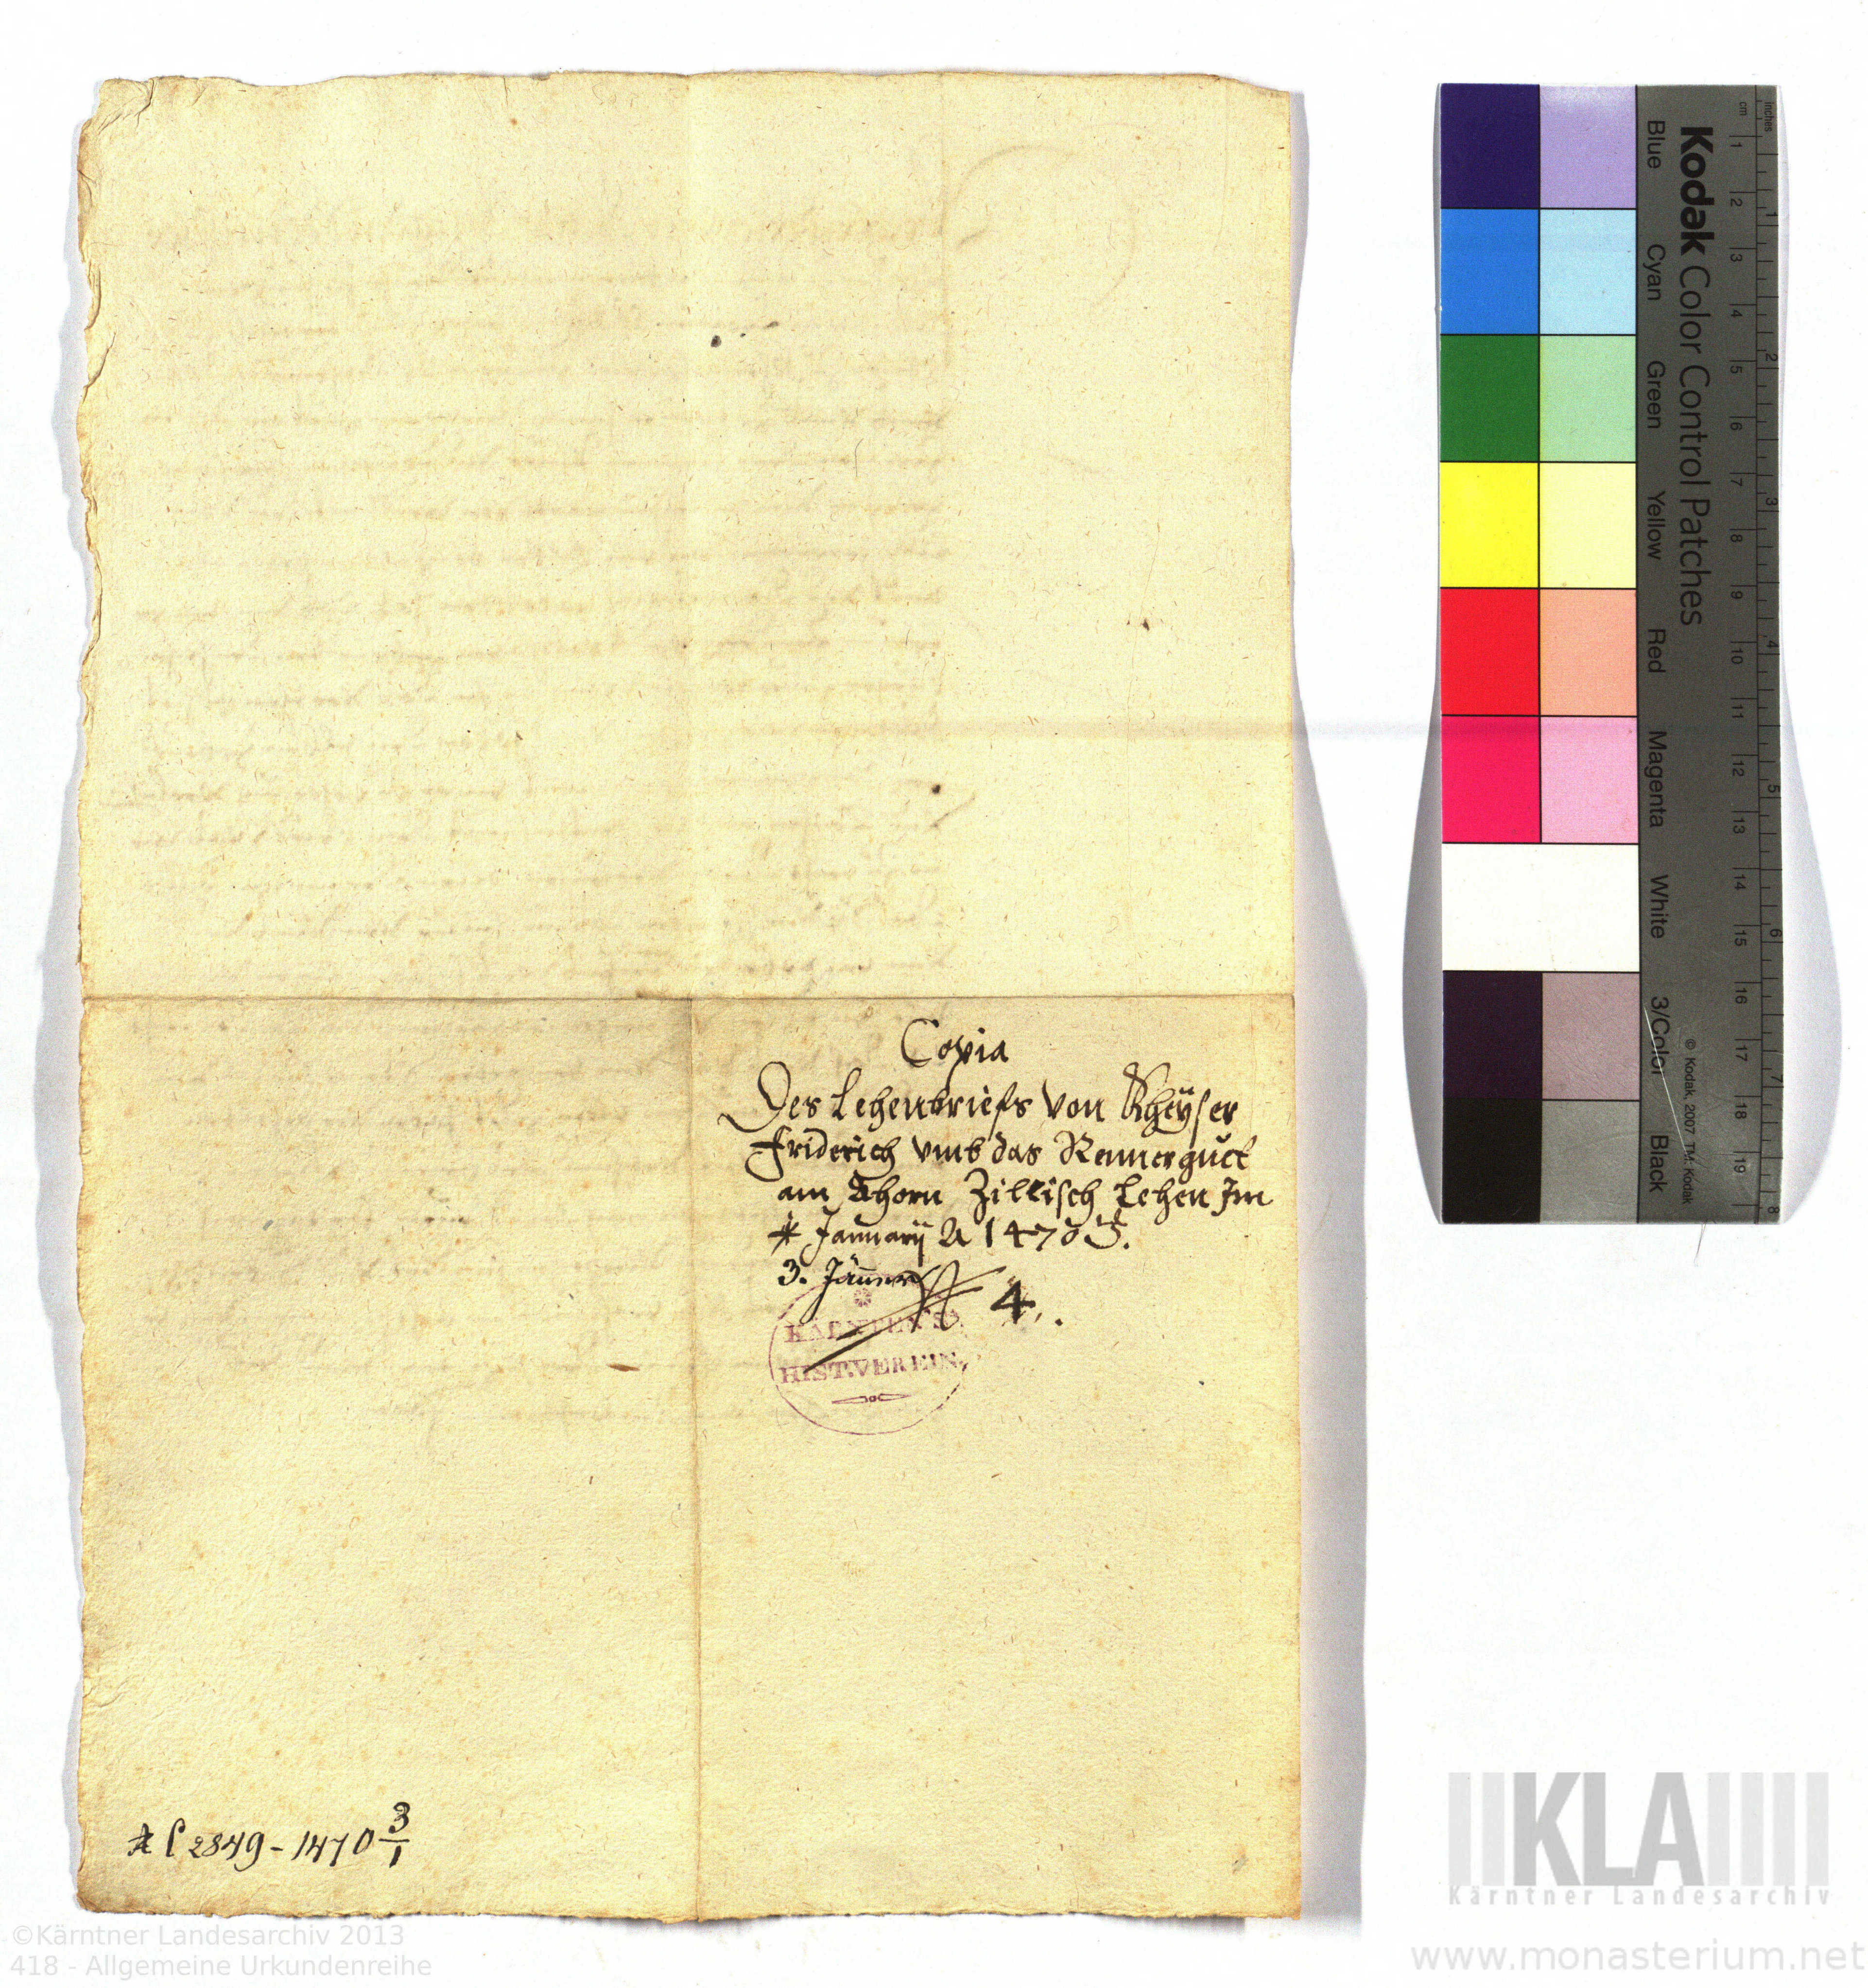 Copia
Des Lehenbriefs von Kheÿser
Friderich vmb das Rennerguet
am Ahorn Zillisch Lehen Im
Januarij A 1470
3. Jänner
4.
KÄRNTEN'S
HIST.VEREIN.
2849 - 1470 3/1
Kodak Color Control Patches
Blue Cyan Green Yellow Red Magenta White 3/Color Black
© Kodak, 2007 TM: Kodak
cm 1 2 3 4 5 6 7 8 9 10 11 12 13 14 15 16 17 18 19
inches 1 2 3 4 5 6 7 8
KLA
Kärntner Landesarchiv
©Kärntner Landesarchiv 2013
418 - Allgemeine Urkundenreihe
www.monasterium.net